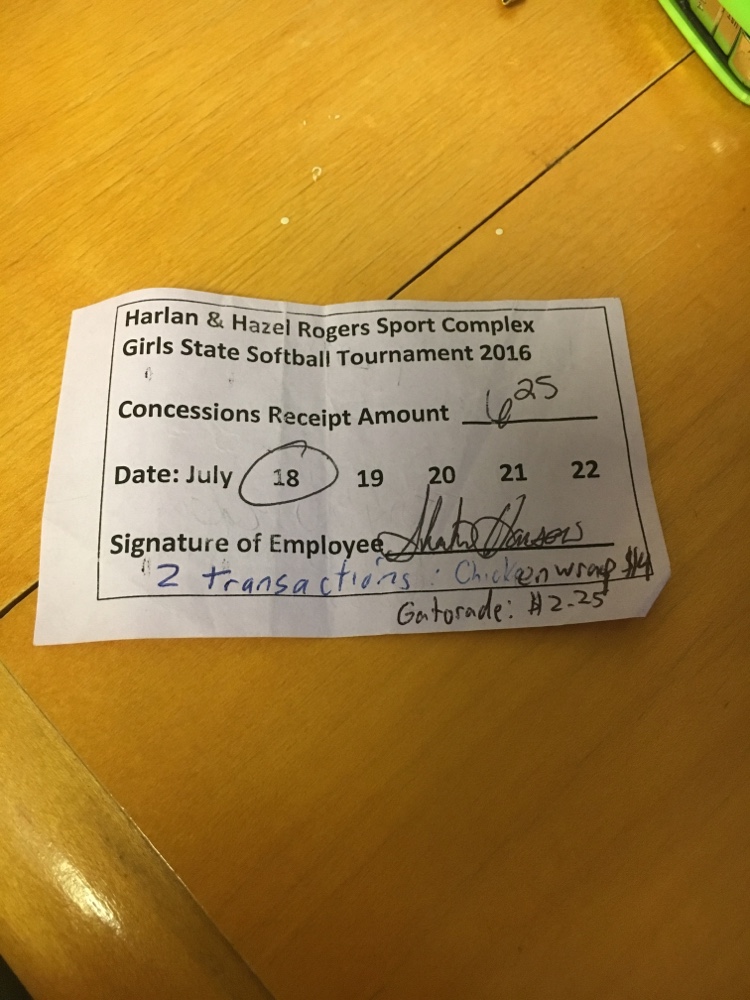 Harlan & Hazel Rogers Sport Complex
Girls State Softball Tournament 2016
Concessions Receipt Amount 6 25
Date: July 18 19 20 21 22
Signature of Employee
2 transactions: Chicken wrap $4
Gatorade: $2.25